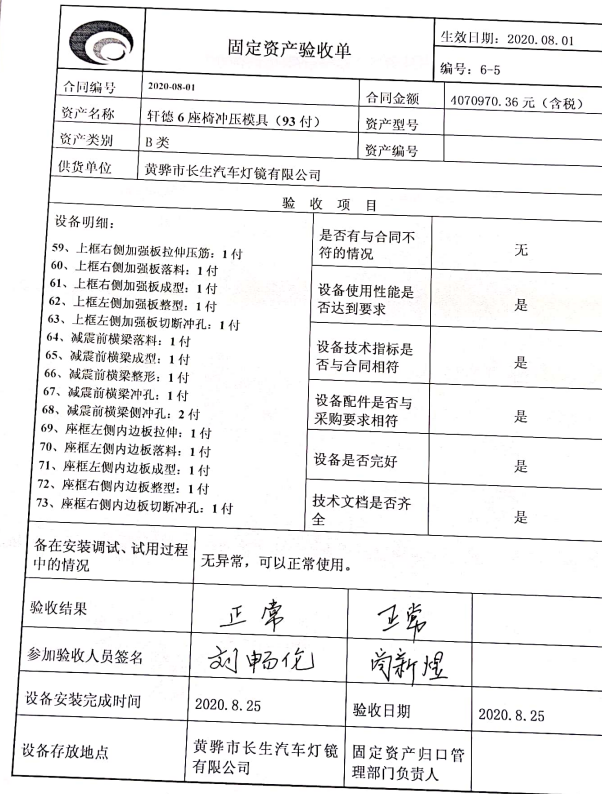 固定资产验收单
生效日期：2020.08.01
编号：6-5
合同编号 2020-08-01 合同金额 4070970.36元（含税）
资产名称 轩德6座椅冲压模具（93付） 资产型号
资产类别 B类 资产编号
供货单位 黄骅市长生汽车灯镜有限公司
验 收 项 目
设备明细：
59、上框右侧加强板拉伸压筋：1付
60、上框右侧加强板落料：1付
61、上框右侧加强板成型：1付
62、上框左侧加强板整型：1付
63、上框左侧加强板切断冲孔：1付
64、减震前横梁落料：1付
65、减震前横梁成型：1付
66、减震前横梁整形：1付
67、减震前横梁冲孔：1付
68、减震前横梁侧冲孔：2付
69、座框左侧内边板拉伸：1付
70、座框左侧内边板落料：1付
71、座框左侧内边板成型：1付
72、座框右侧内边板整型：1付
73、座框右侧内边板切断冲孔：1付
是否有与合同不
符的情况 无
设备使用性能是
否达到要求 是
设备技术指标是
否与合同相符 是
设备配件是否与
采购要求相符 是
设备是否完好 是
技术文档是否齐
全 是
备在安装调试、试用过程
中的情况
无异常，可以正常使用。
验收结果 正常 正常
参加验收人员签名 刘畅伦 新煜
设备安装完成时间 2020.8.25 验收日期 2020.8.25
设备存放地点
黄骅市长生汽车灯镜
有限公司
固定资产归口管
理部门负责人